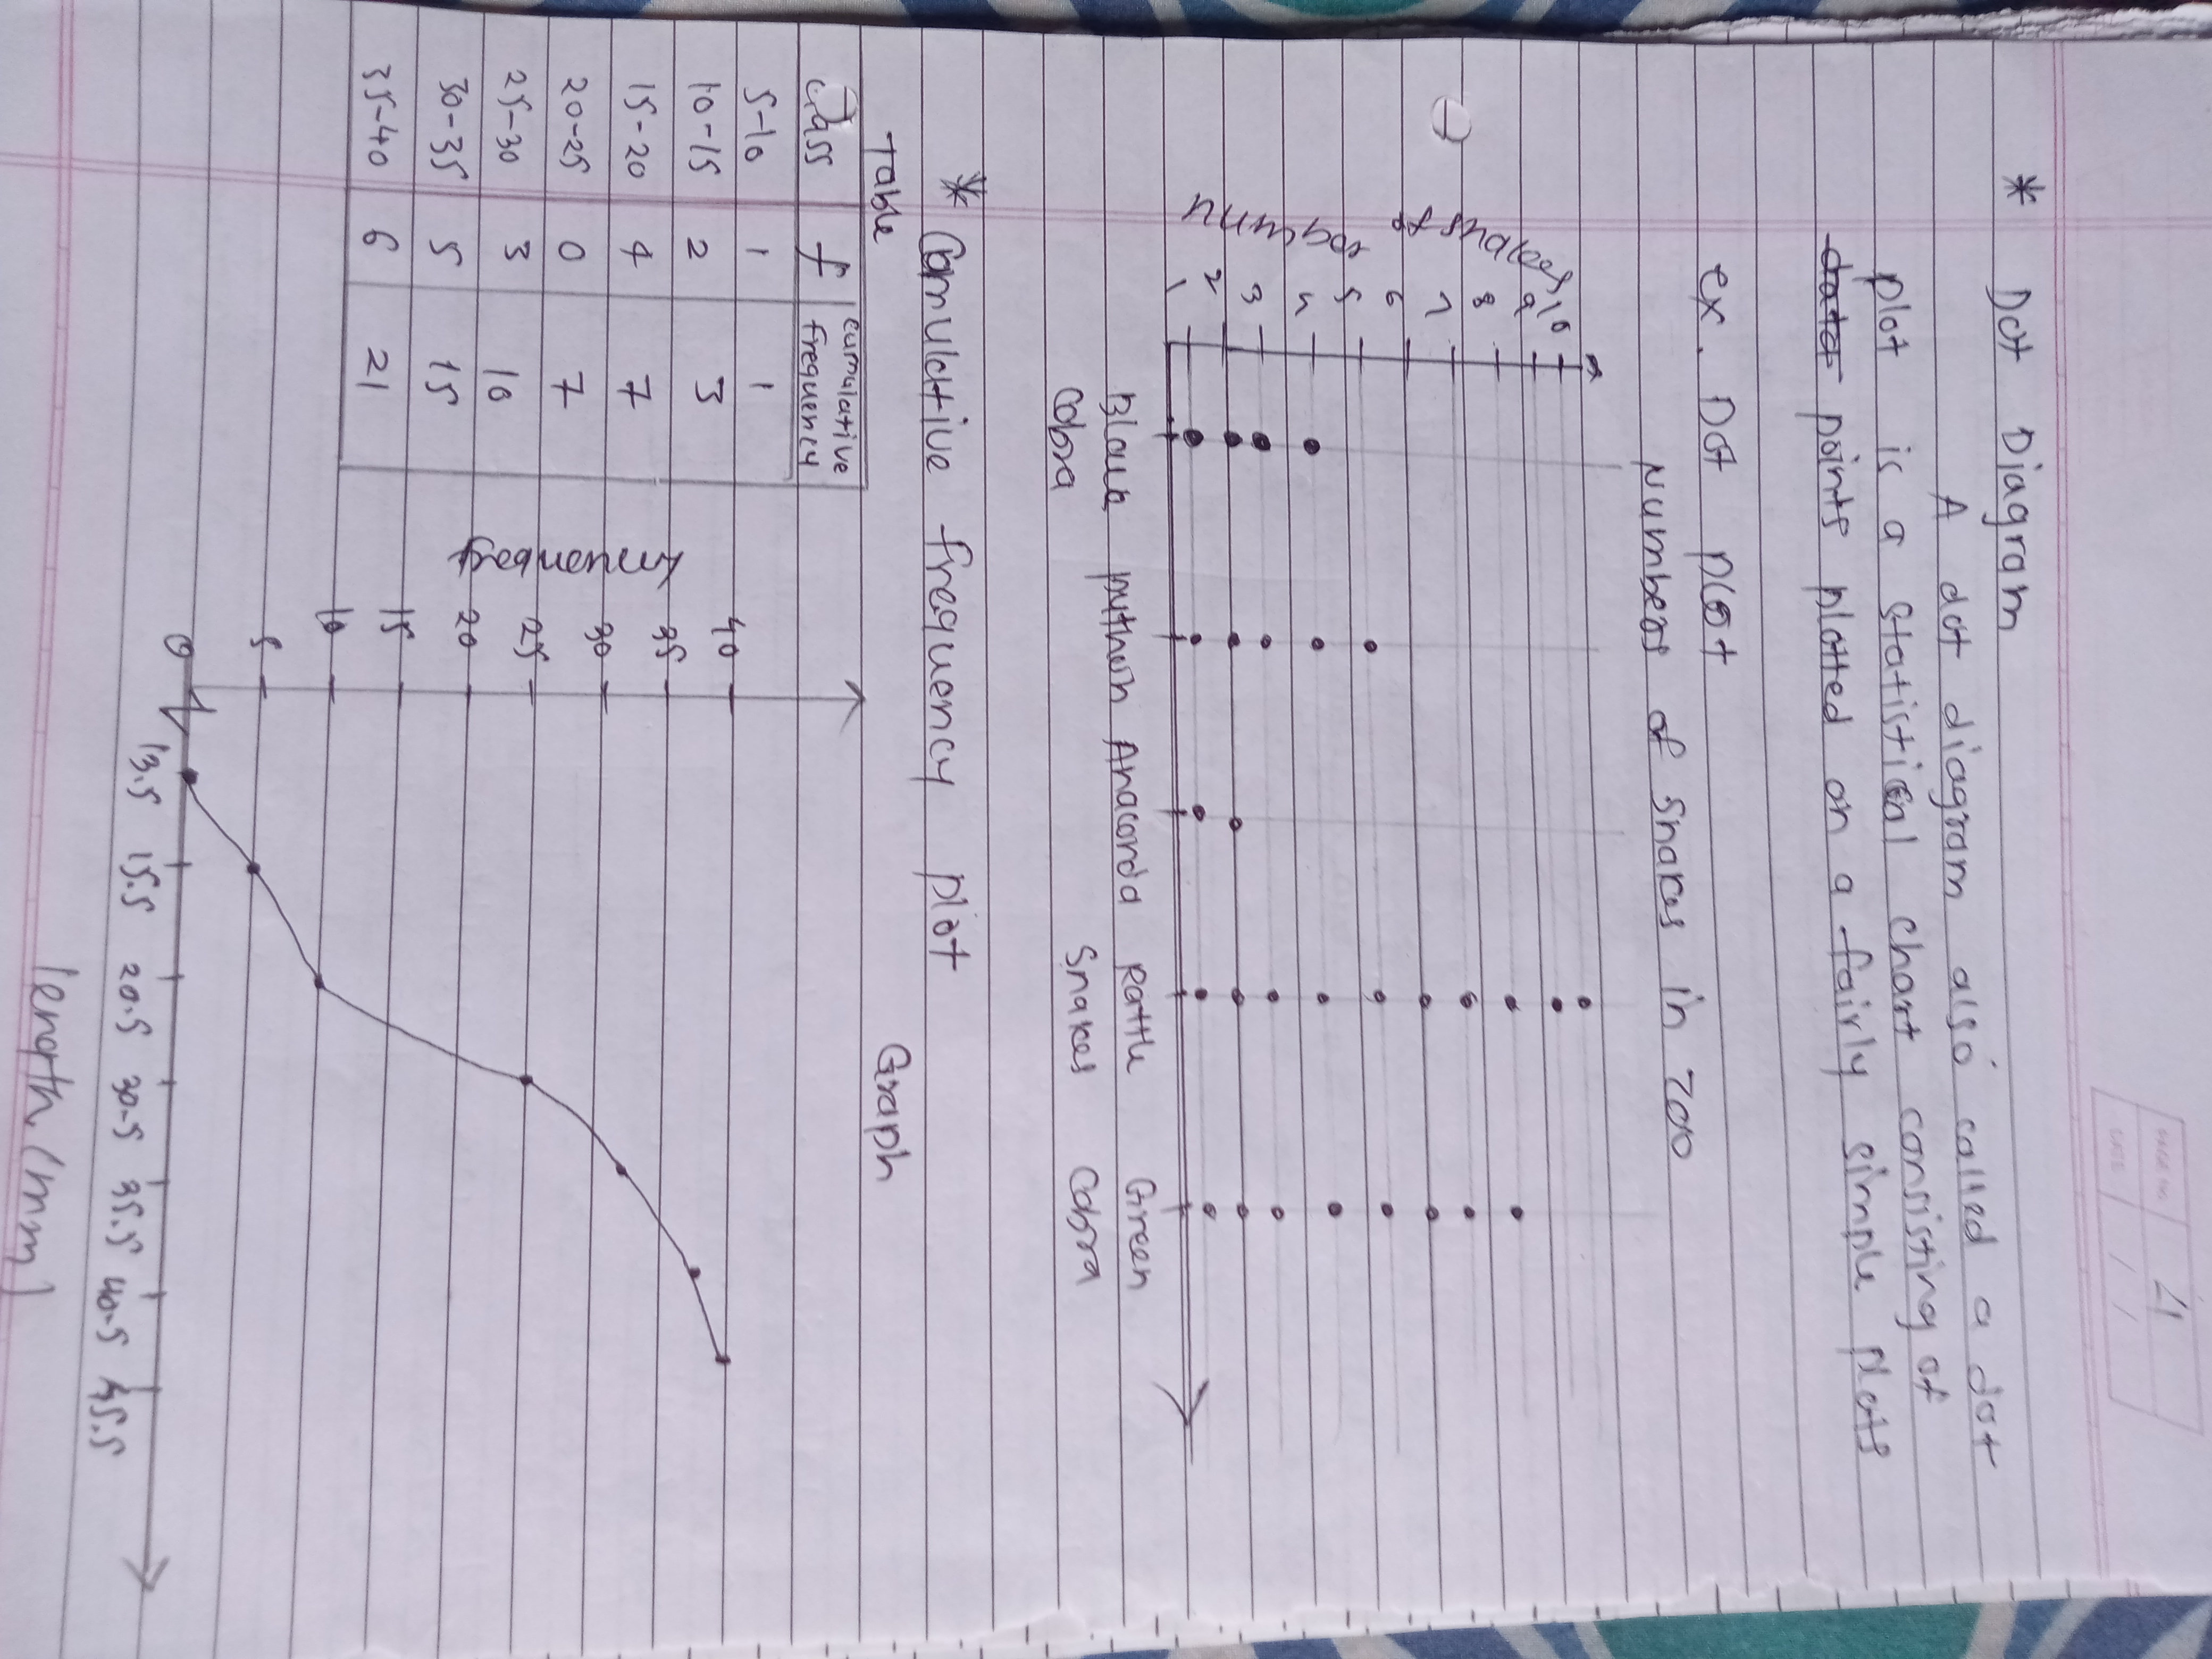 PAGE NO. 4
DATE / /
* Dot Diagram
A dot diagram also called a dot
plot is a statistical chart consisting of
points plotted on a fairly simple plots
ex. Dot plot
Numbers of Snakes in zoo
number of snakes
10
9
8
7
6
5
4
3
2
1
Black python Anaconda Rattle Green
Cobra Snakes Cobra
* Comulative frequency plot
Table
Class f cumulative frequency
5-10 1 1
10-15 2 3
15-20 4 7
20-25 0 7
25-30 3 10
30-35 5 15
35-40 6 21
Graph
frequency
40
35
30
25
20
15
10
5
0
13.5 15.5 20.5 30.5 35.5 40.5 45.5
length (mm)